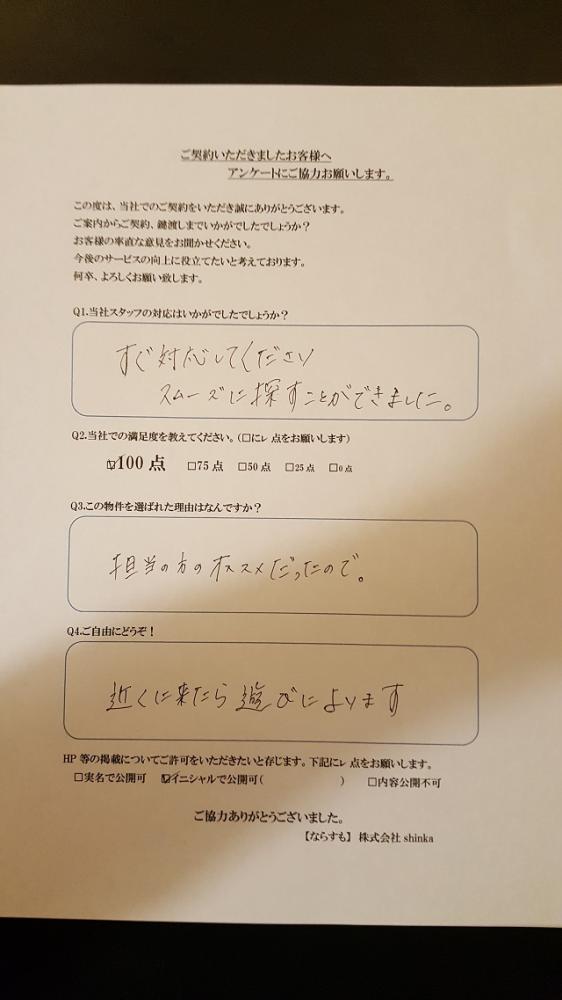 ご契約いただきましたお客様へ
アンケートにご協力お願いします。
この度は、当社でのご契約をいただき誠にありがとうございます。
ご案内からご契約、鍵渡しまでいかがでしたでしょうか？
お客様の率直な意見をお聞かせください。
今後のサービスの向上に役立てたいと考えております。
何卒、よろしくお願い致します。
Q1.当社スタッフの対応はいかがでしたでしょうか？
すぐ対応してくださり
スムーズに探すことができました。
Q2.当社での満足度を教えてください。（□にレ点をお願いします）
☑100点 □75点 □50点 □25点 □0点
Q3.この物件を選ばれた理由はなんですか？
担当の方のオススメだったので。
Q4.ご自由にどうぞ！
近くに来たら遊びによります
HP等の掲載についてご許可をいただきたいと存じます。下記にレ点をお願いします。
□実名で公開可 ☑イニシャルで公開可（ ） □内容公開不可
ご協力ありがとうございました。
【ならすも】株式会社shinka